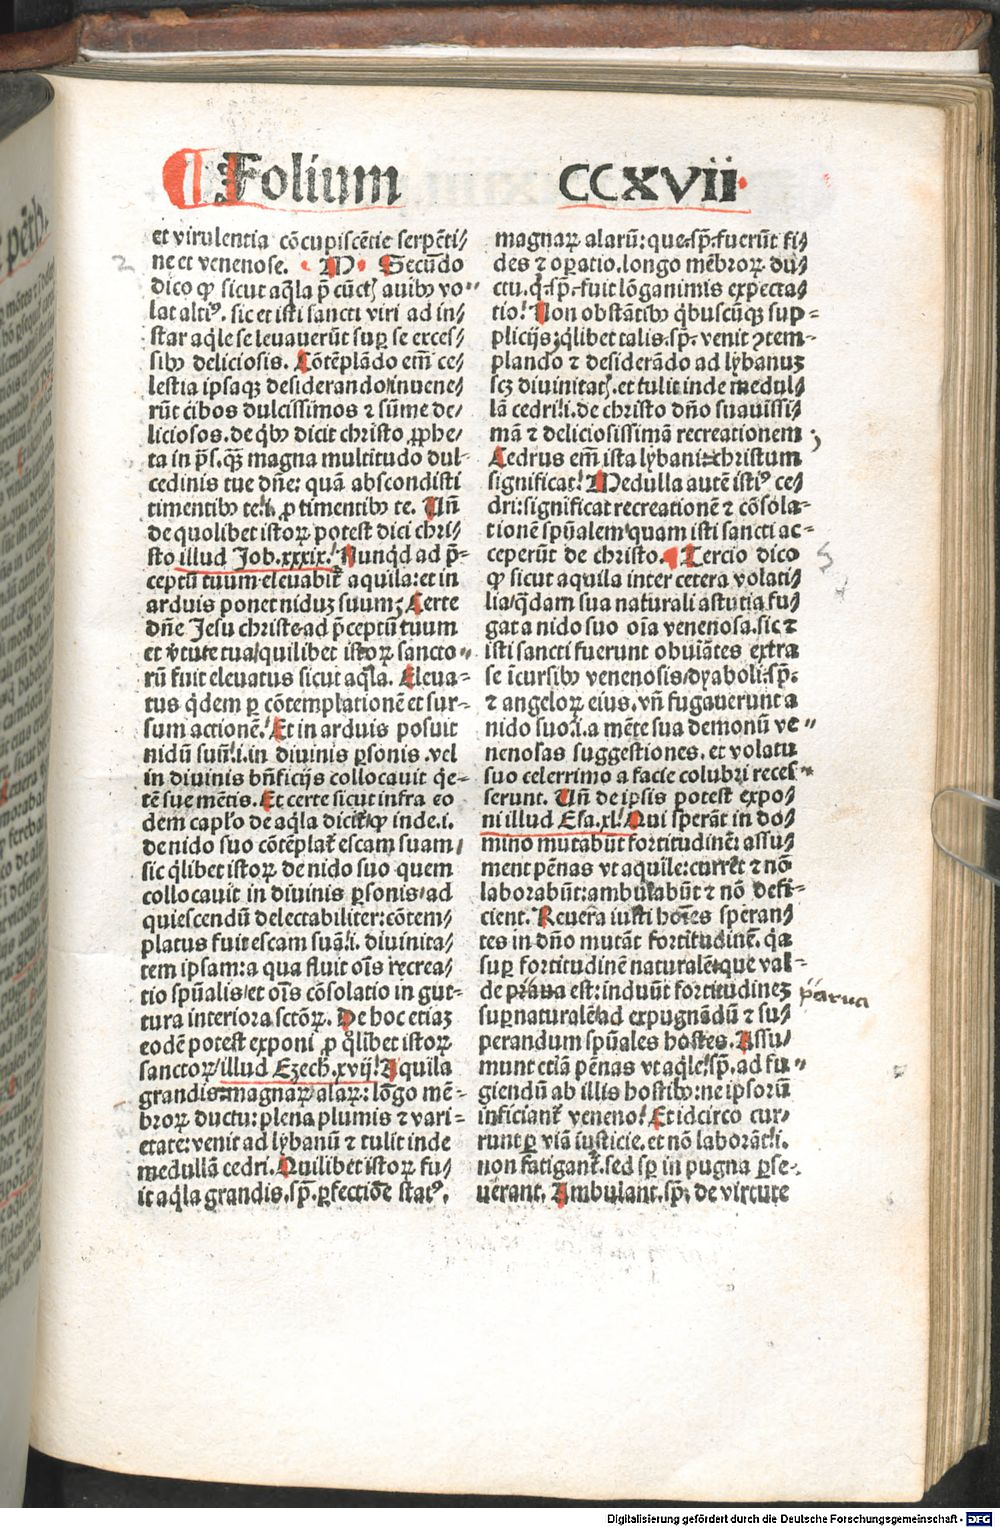 ¶ Folium CCXVii
et virulentia cōcupiscētie serpēti/
ne et venenose. M Secūdo
dico ꝙ sicut aq̃la p̄ cūctꝭ auibꝫ vo⸗
lat altiꝰ. sic et isti sancti viri ad in/
star aq̃le se leuauerūt suꝑ se exces/
sibꝫ deliciosis. Cōtēplādo em̄ ce/
lestia ipsaqꝫ desiderando/inuene/
rūt cibos dulcissimos ⁊ sūme de/
liciosos. de q̄bꝫ dicit christo ꝓphe/
ta in p̄s. q̄ꝫ magna multitudo dul⸗
cedinis tue dn̄e: quā abscondisti
timentibꝫ te. i. ꝓ timentibꝫ te. Un̄
de quolibet istoꝝ potest dici chri/
sto illud Job. xxxix. Nunqd ad p̄⸗
ceptū tuum eleuabit̄ aquila: et in
arduis ponet niduꝫ suum; Certe
dn̄e Jesu christe ad p̄ceptū tuum
et v̄tute tua/quilibet istoꝝ sancto⸗
rū fuit eleuatus sicut aq̃la. Eleua⸗
tus q̇dem ꝑ cōtemplationē et sur⸗
sum actionē. Et in arduis posuit
nidū suū. i. in diuinis ꝑsonis. vel
in diuinis bn̄ficijs collocauit q̇e⸗
tē sue mētis. Et certe sicut infra eo
dem cap̄lo de aq̃la dicit̄ ꝙ inde. i.
de nido suo cōtēplat̄ escam suam/
sic q̇libet istoꝝ de nido suo quem
collocauit in diuinis ꝑsonis/ad
quiescendū delectabiliter: cōtem/
platus fuit escam suā. i. diuinita/
tem ipsam: a qua fluit oīs recrea/
tio spūalis/et oīs cōsolatio in gut⸗
tura interiora sctōꝝ. De hoc etiaꝫ
eodē potest exponi ꝓ q̄libet istoꝝ
sanctoꝝ/illud Ezech. xvij. Aquila
grandis magnaꝝ alaꝝ: lōgo mē⸗
broꝝ ductu: plena plumis ⁊ vari⸗
etate: venit ad lybanū ⁊ tulit inde
medullā cedri. Quilibet istoꝝ fu/
it aq̃la grandis. sp̄. ꝑfectiōe statꝰ.
magnaꝝ alarū: que. sp̄. fuerūt fi/
des ⁊ oꝑatio. longo mēbroꝝ du/
ctu. q̄. sp̄. fuit lōganimis expecta/
tio. Non obstātibꝫ q̇buscūqꝫ sup⸗
plicijs; q̇libet talis. sp̄. venit ꝯtem⸗
plando ⁊ desiderādo ad lybanuꝫ
scꝫ diuinitatꝭ. et tulit inde medul/
lā cedri. i. de christo dn̄o suauissi/
mā ⁊ deliciosissimā recreationem
Cedrus em̄ ista lybani christum
significat. Medulla autē istiꝰ ce/
dri: significat recreationē ⁊ cōsola⸗
tionē spūalem quam isti sancti ac⸗
ceperūt de christo. ¶ Tercio dico
ꝙ sicut aquila inter cetera volati/
lia/q̇dam sua naturali astutia fu/
gat a nido suo oīa venenosa. sic ⁊
isti sancti fuerunt obuiātes extra
se īcursibꝫ venenosis/dyaboli. sp̄.
⁊ angeloꝝ eius. vn̄ fugauerunt a
nido suo. i. a mēte sua demonū ve⸗
nenosas suggestiones. et volatu
suo celerrimo a facie colubri reces⸗
serunt. Un̄ de ipsis potest expo/
ni illud Esa. xl. Qui sperāt in do/
mino mutabūt fortitudinē: assu/
ment pēnas vt aquile: curret̄ ⁊ nō
laborabūt: ambulabūt ⁊ nō defi⸗
cient. Reuera iusti hoīes speran/
tes in dn̄o mutāt fortitudinē. q̇a
suꝑ fortitudinē naturalē que val⸗
de praua est: induūt fortitudinēꝫ
suꝑnaturalē/ad expugnādū ⁊ su/
perandum spūales hostes. Assu/
munt etiā pēnas vt aq̃le. sp̄. ad fu⸗
giendū ab illis hostibꝫ: ne ipsorū
inficiant̄ veneno. Et idcirco cur/
runt ꝑ viā iusticie. et nō laborāt. i.
non fatigant̄. sed sp̄ in pugna ꝑse⸗
uerant. Ambulant. sp̄. de virtute
2
5
parua
Digitalisierung gefördert durch die Deutsche Forschungsgemeinschaft - DFG